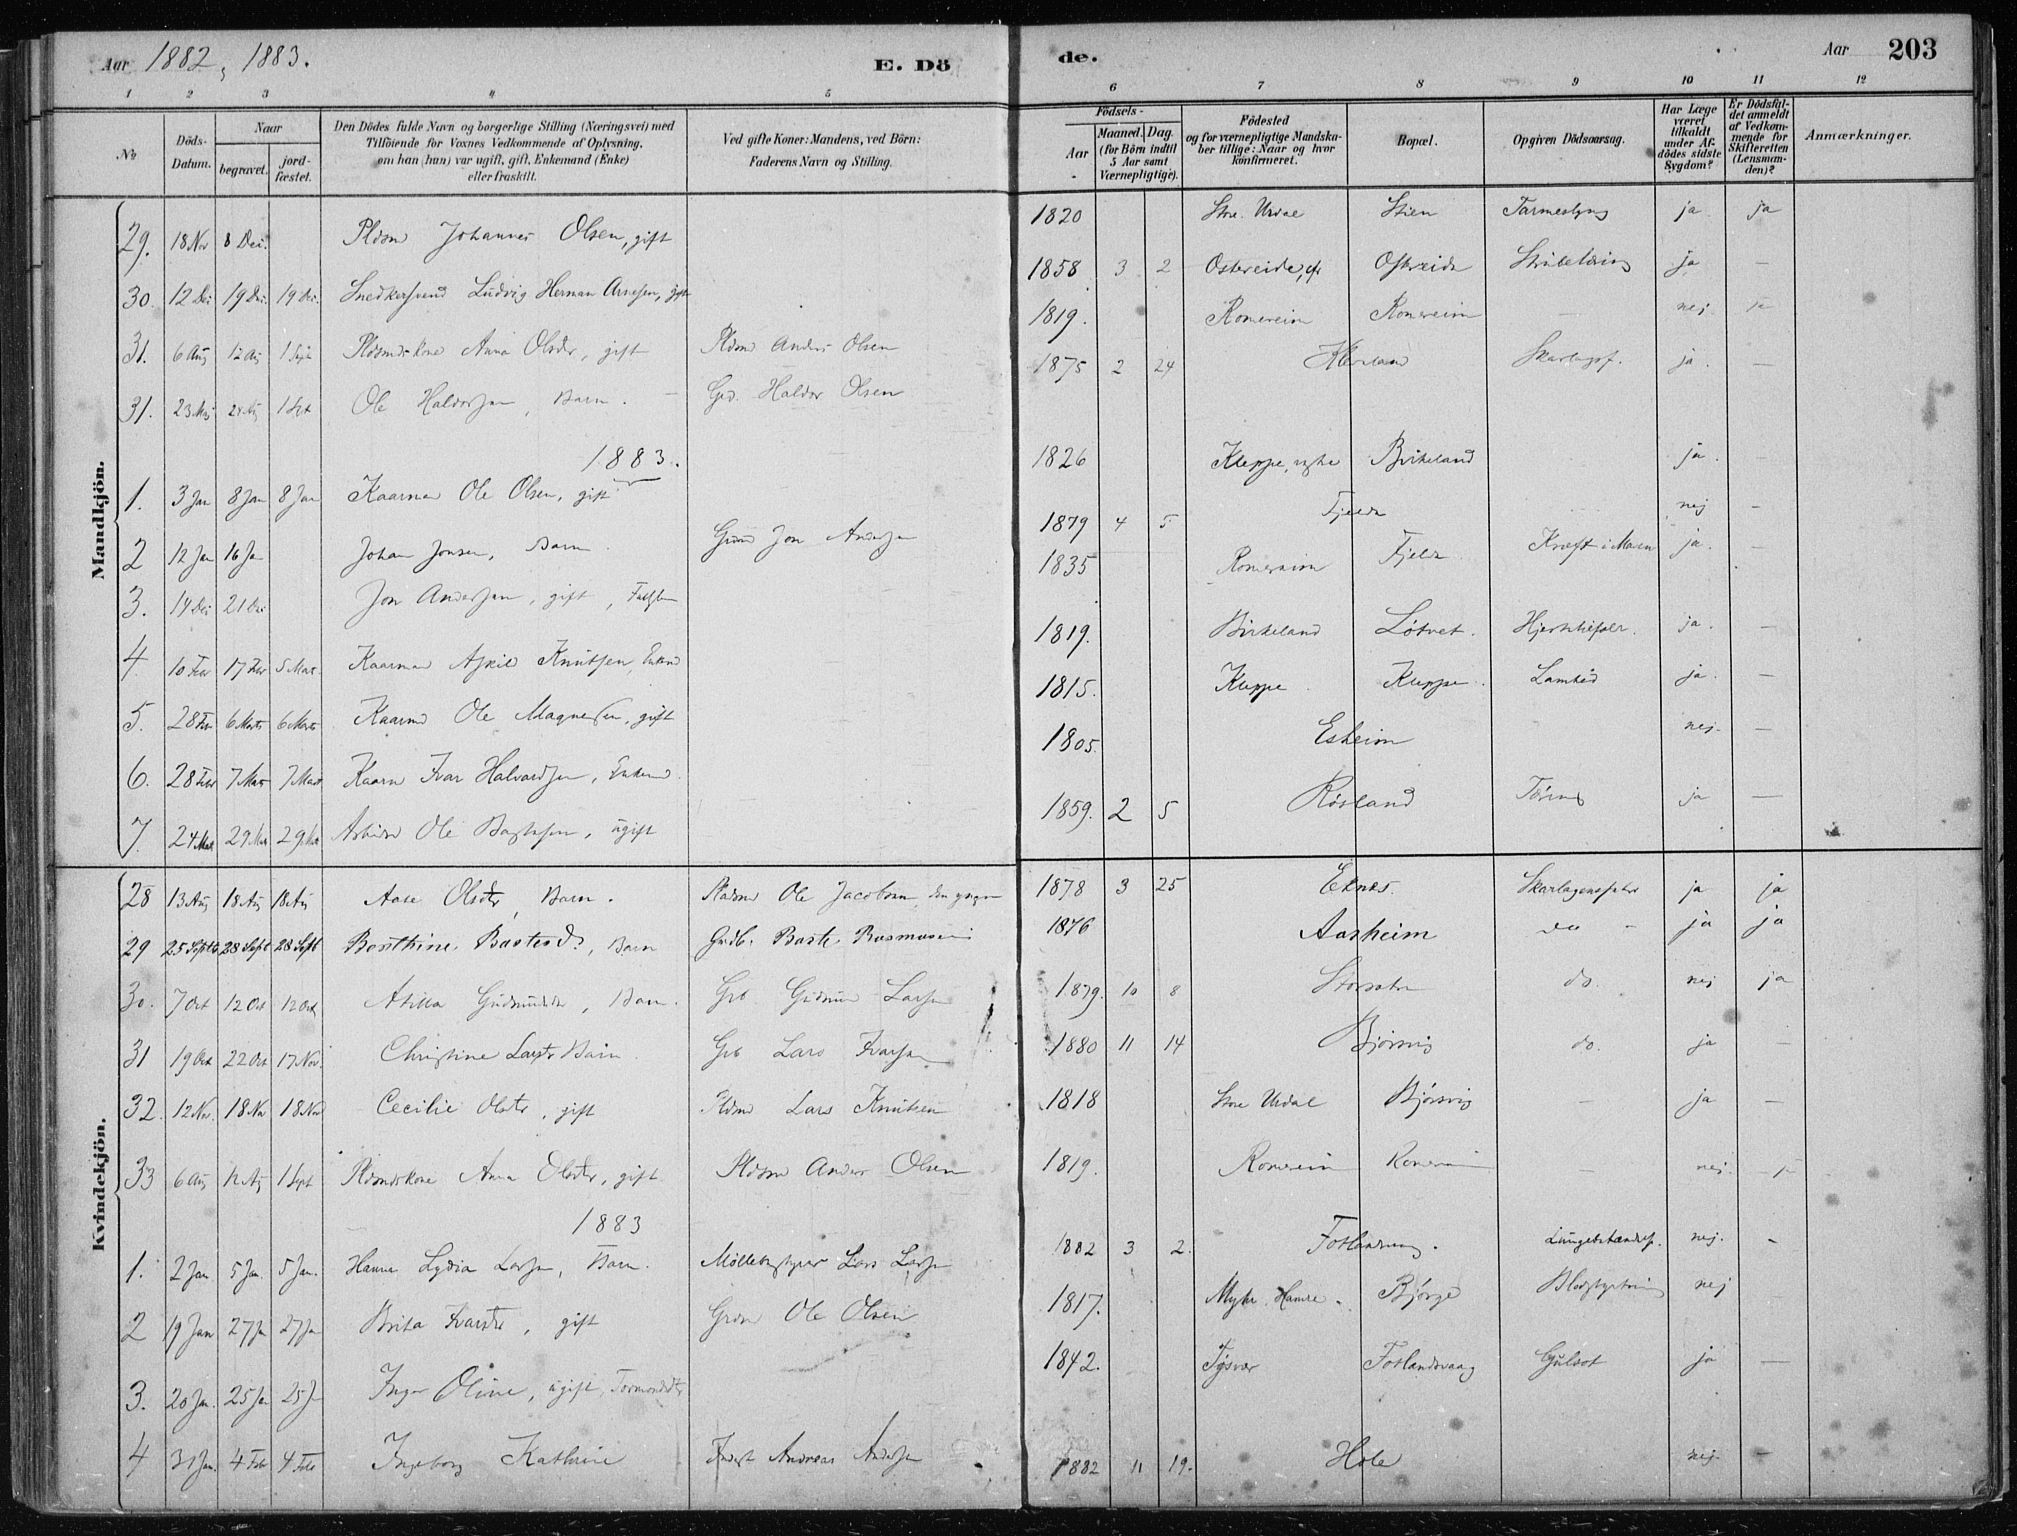 Aar 1882, 1883. E. Dö de. Aar 203
1 2 3 4 5 6 7 8 9 10 11 12
No
Döds-Datum.
Naar begravet. jordfæstet.
Den Dödes fulde Navn og borgerlige Stilling (Næringsvei) med Tilföiende for Voxnes Vedkommende af Oplysning, om han (hun) var ugift, gift, Enkemand (Enke) eller fraskilt.
Ved gifte Koner: Mandens, ved Börn: Faderens Navn og Stilling.
Födsels- Aar Maaned. Dag. (for Börn indtil 5 Aar samt Værnepligtige).
Födested og for værnepligtige Mandskaber tillige: Naar og hvor konfirmeret.
Bopæl.
Opgiven Dödsaarsag.
Har Læge været tilkaldt under Afdödes sidste Sygdom?
Er Dödsfaldet anmeldt af Vedkommende for Skifteretten (Lensmanden)?
Anmærkninger.
Mandkjön.
29. 18 Nov 8 Dec. Pldsmd Johannes Olsen, gift 1820 Store Urdal Stien ja ja
30. 12 Dec 19 Dec. 19 Dec. Snedkersvend Ludvig Herman Arnesen, gift 1858 3 2 Ostereide Ostereide ja —
31. 6 Aug 12 Aug 1 Sept Pldsmdskone Anna Olsdtr, gift Pldsmd Anders Olsen 1819. Romereim Romereim — nej ja
31. 23 Aug 28 Aug 1 Sept Ole Haldorsen, Barn. Grd. Haldor Olsen 1875 2 24 Skarlagsf. ja. —
1883.
1. 3 Jan 8 Jan 8 Jan Kaarmd Ole Olsen, gift 1826 Kleppe Birkeland ja.
2 12 Jan 16 Ja Johan Jonsen, Barn Grdmd Jon Andersen 1879 4 5 Fjeld nej —
3. 14 Dec 21 Dec Jon Andersen, gift 1835 Romereim Fjeld Kræft i Maven ja. —
4. 10 Febr 17 Febr 5 Marts Kaarmd Askild Knutsen, Enkmd 1819. Birkeland Løtvet. Hjertefeil. ja. —
5. 28 Febr 6 Marts 6 Marts Kaarmd Ole Magnesen, gift 1815. Kleppe Kleppe Lamhed ja. —
6. 28 Febr 7 Marts 7 Marts Kaarmd Ivar Halvardsen, Enkemd. 1805. Eskeim nej. —
7. 24 Mar 29 Mar 29 Mar Arbeidsmd Ole Bastesen, ugift 1859. 2 5 Røsland Tæring ja —
Kvindekjön.
28 13 Aug 18 Aug 18 Aug Aase Olsdtr, Barn. Pladsmd Ole Jacobsen, den yngre 1878 3 25 Eknes. Skarlagensfeber ja ja
29 25 Septb 28 Sept 28 Sept Bosthine Bastesd., Barn Grdb. Baste Rasmussen 1876 Aasheim do ja ja
30. 7 Oct 12 Oct 12 Oct Atilla Gudmundsdtr, Barn. Grb Gudmun Larsen 1879. 10 8 Storsæter do. nej ja
31 19 Oct 22 Oct 17 Nov. Christine Larsdtr Barn Grb Lars Ivarsen 1880 11 14 Bjørsvig do. ja —
32. 12 Nov. 18 Nov 18 Nov Cecilie Olsdtr, gift Pldsmd Lars Knutsen 1818 Store Urdal Bjørsvig — ja —
33 6 Aug 12 Aug 1 Sept Pldsmdskone Anna Olsdtr, gift Pldsmd Anders Olsen 1819. Romereim Romereim — nej. ja
1883
1. 2 Jan 5 Jan. 5 Jan. Hanna Lydia Larsen, Barn. Møllebestyrer Lars Larsen 1882 3 2. Fotlandsvaag. Lungebetændelse. nej. —
2 19 Jan 27 Ja 27 Jan Brita Ivarsdtr, gift Grdmd Ole Olsen 1817. Myhr Hamre. Bjørge Blodstyrtning nej
3. 20 Jan. 25 Jan 25 Ja Inger Oline, ugift, Tormodsdtr 1842. Tysvær Fotlandsvaag Gulsot ja —
4 31 Jan. 4 Febr 4 Febr Ingeborg Kathrine Inderst Andreas Andersen 1882 11 19. Hole nej. —